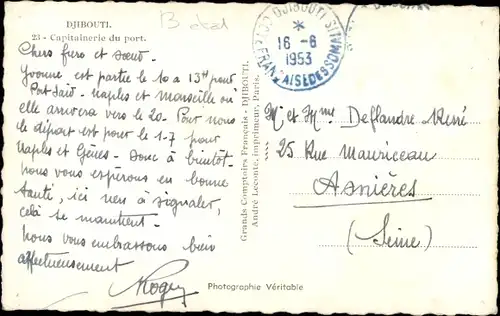 DJIBOUTI.
23 - Capitainerie du port.
Chers frère et sœur.
Yvonne est partie le 10 a 13H pour
Port Saïd - Naples et Marseille où
elle arrivera vers le 20. Pour nous
le départ est pour le 1-7 pour
Naples et Gênes. Donc à bientôt.
nous vous espérons en bonne
santé, ici rien à signaler,
celà se maintient.
Nous vous embrassons bien
affectueusement
Roger
Grands Comptoirs Français - DJIBOUTI.
André Leconte, imprimeur, Paris.
DJIBOUTI
*
16-6
1953
Mr et Mme Deflandre René
25 Rue Mauriceau
Asnières
(Seine)
Photographie Véritable